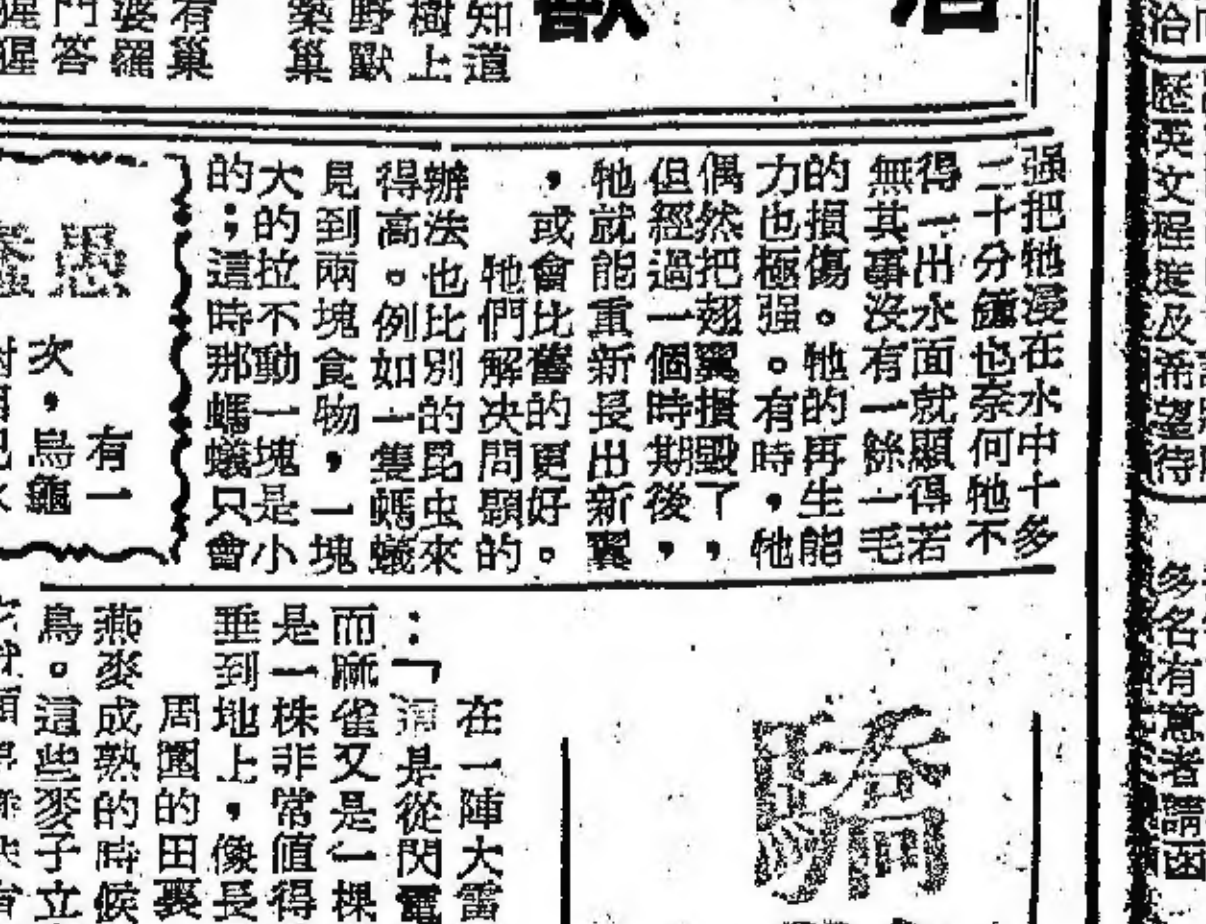 洽
歷英文程度及希望待
多名有意者請函
知道
樹上
野獸
築巢
有巢
婆羅
門答
猩猩
强把牠浸在水中十多
二十分鐘也奈何牠不
得一出水面就顯得若
無其事沒有一絲一毛
的損傷。牠的再生能
力也極强。有時，牠
偶然把翅翼損毀了，
但經過一個時期後，
牠就能重新長出新翼
，或會比舊的更好。
牠們解決問題的
辦法也比別的昆虫來
得高。例如一隻螞蟻
見到兩塊食物，一塊
大的拉不動一塊是小
的；這時那螞蟻只會
愚
有一
次，烏龜
驕
在一陣大雷
：「這是從閃電
而麻雀又是一棵
是一株非常值得
垂到地上，像長
周圍的田裏
燕麥成熟的時候
鳥。這些麥子立